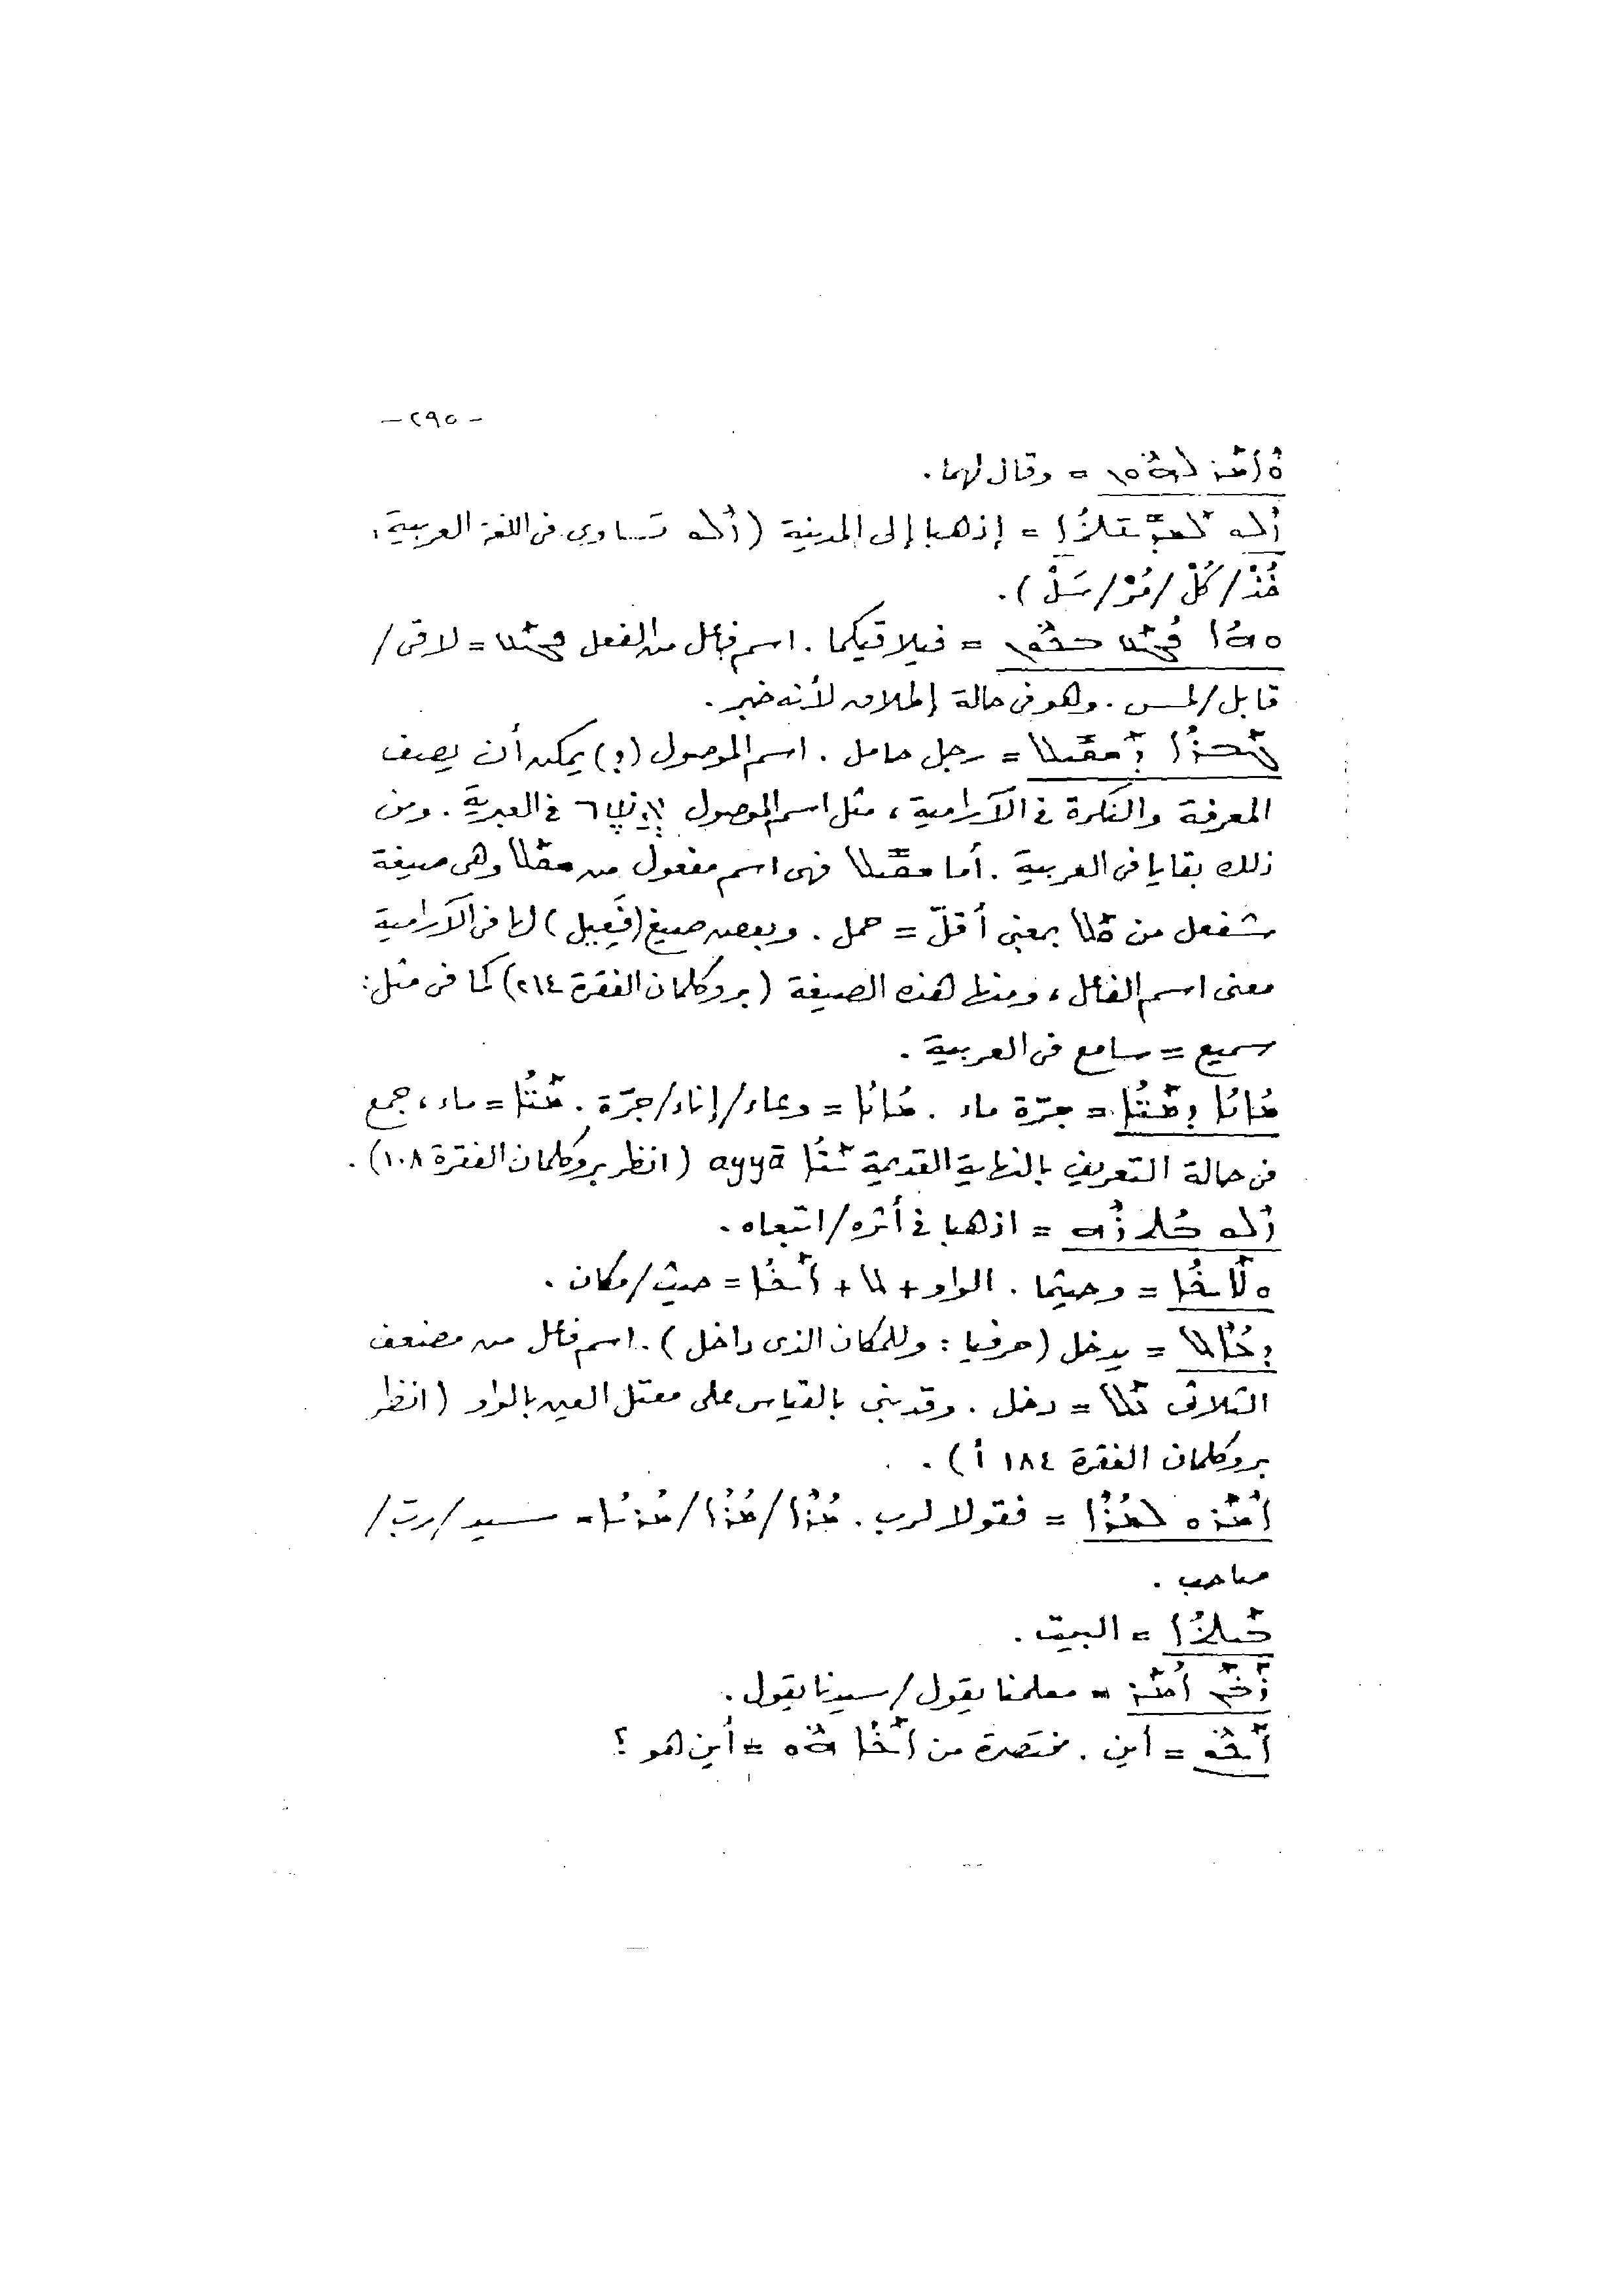 - ٢٩٥ -
ܘܐܡܪ ܠܗܘܢ = وقال لهما.
ܙܠܘ ܠܡܕܝܢܬܐ = إذهبا إلى المدينة (ܙܠܘ تساوي فى اللغة العربية:
خُذْ/كُلْ/مُرْ/سَلْ).
ܘܗܐ ܦܓܥ ܒܟܘܢ = فيلاقيكما. اسم فاعل من الفعل ܦܓܥ = لاقى/
قابل/لمس. وهو فى حالة إطلاق لأنه خبر.
ܓܒܪܐ ܕܫܩܝܠ = رجل حامل. اسم الموصول (ܕ) يمكن أن يصف
المعرفة والنكرة فى الآرامية، مثل اسم الموصول فى العبرية. ومن
ذلك بقايا فى العربية. أما ܫܩܝܠ فهى اسم مفعول من ܫܩܠ وهى صيغة
شفعل من ܩܠ بمعنى أقلّ = حمل. وبعض صيغ (فَعِيل) لها فى الآرامية
معنى اسم الفاعل، ومنها هذه الصيغة (بروكلمان الفقرة ٢١٤) كما فى مثل:
سميع = سامع فى العربية.
ܡܐܢܐ ܕܡܝܐ = جرّة ماء. ܡܐܢܐ = وعاء/إناء/جرّة. ܡܝܐ = ماء، جمع
فى حالة التعريف بالنهاية القديمة ayyā (انظر بروكلمان الفقرة ١٠٨).
ܙܠܘ ܒܬܪܗ = اذهبا فى أثره/اتبعاه.
ܘܠܐܝܟܐ = وحيثما. الواو + ܠ + ܐܝܟܐ = حيث/مكان.
ܕܥܐܠ = يدخل (حرفيا: وللمكان الذى داخل). اسم فاعل من مضعف
الثلاثى ܥܠ = دخل. وقد بنى بالقياس على معتل العين بالواو (انظر
بروكلمان الفقرة ١٨٤ أ).
ܐܡܪܘ ܠܡܪܐ = فقولا لرب. ܡܪܐ/ܡܪܐ/ܡܪܝܐ = سيد/ربّ/
صاحب.
ܒܝܬܐ = البيت.
ܪܒܢ ܐܡܪ = معلمنا يقول/سيدنا يقول.
ܐܝܟܘ = أين. مختصرة من ܐܝܟܐ ܗܘ = أين هو؟